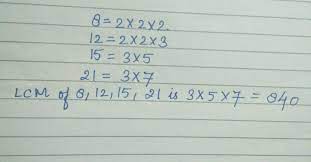 8 = 2×2×2.
12 = 2×2×3
15 = 3×5
21 = 3×7
LCM of 8, 12, 15, 21 is 3×5×7 = 840